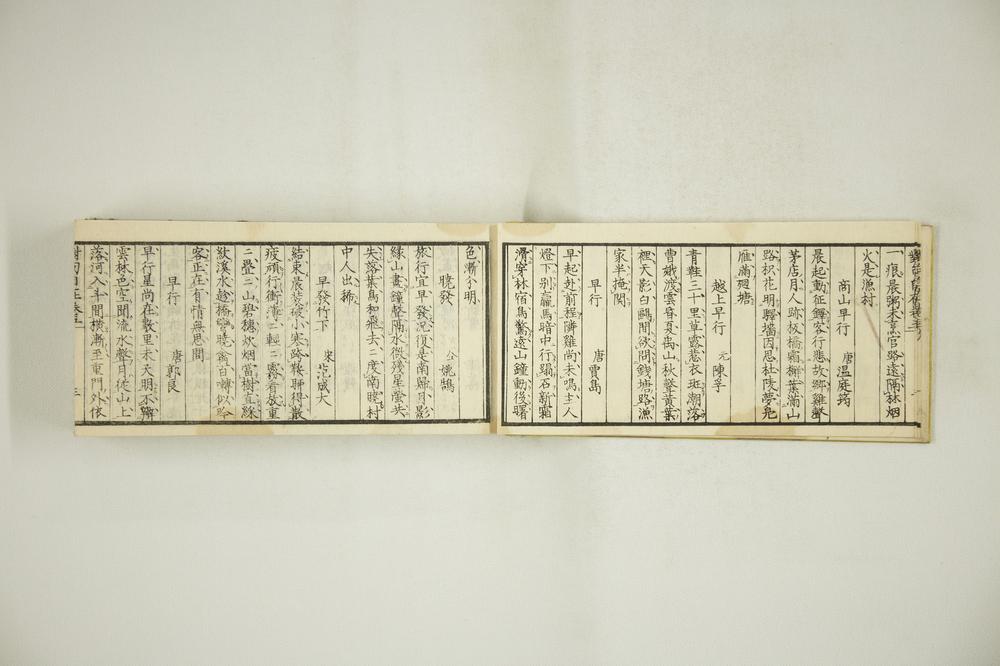 一痕晨粥未烹官路遠隔林烟
火是漁村
商山早行 唐 温庭筠
晨起動征鐸客行悲故鄉雞聲
茅店月人跡板橋霜槲葉滿山
路枳花明驛墻因思杜陵夢鳧
雁滿廻塘
越上早行 元 陳孚
青鞋三十里草露裛衣斑潮落
曹娥渡雲昏夏禹山秋聲黃葉
裡天影白鷗間欲問錢塘路漁
家半掩関
早行 唐 賈島
早起赴前程隣雞尚未鳴主人
燈下別羸馬暗中行蹋石新霜
滑穿林宿鳥驚遠山鐘動後曙
色漸分明
曉發 仝 姚鵠
旅行宜早發況復是南歸月影
緣山盡鐘聲隔水微殘星螢共
失落葉鳥和飛去二度南陵村
中人出稀
早發竹下 宋 范成大
結束晨裝破小寒跨鞍聊得散
疲頑行衝薄二輕二霧看放重
二疊二山碧穗炊烟當樹直綠
紋溪水趁橋彎曉禽百囀似吟
客正在有情無思間
早行 唐 郭良
早行星尚在數里未天明不辨
雲林色空聞流水聲月從山上
落河入斗間橫漸至東門外依